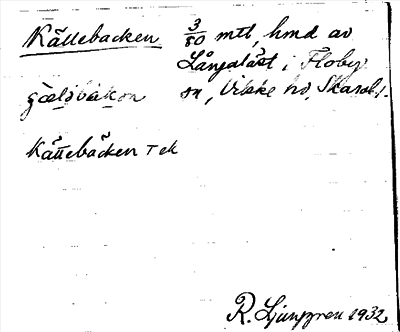 Källebacken 3/80 mtl, hmd av
Långalöst i Floby
sn, Vilske hd, Skarab. l.
Källebacken T ek
R. Ljunggren 1932